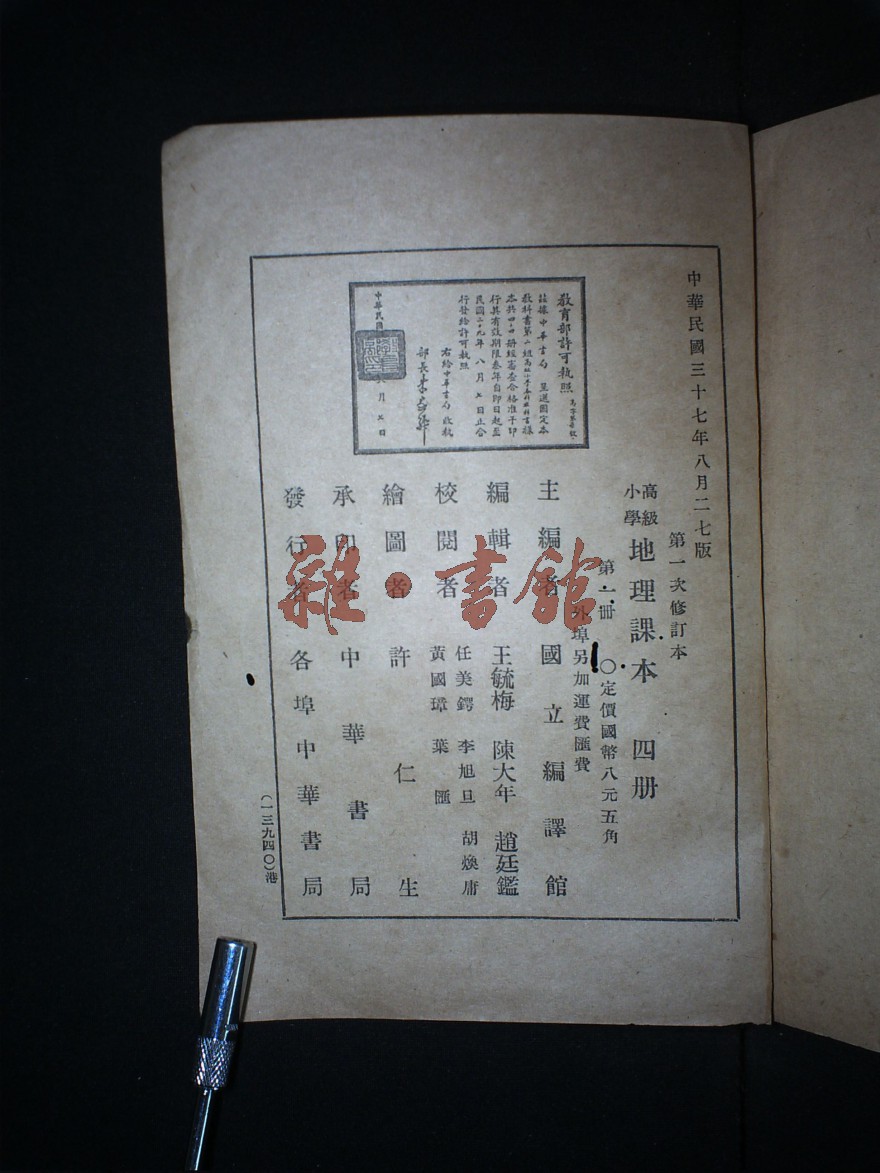 中華民國三十七年八月二七版
第一次修訂本
高級
小學
地理課本 四册
第一册 ○定價國幣八元五角
外埠另加運費匯費
主編者 國立編譯館
編輯者 王毓梅 陳大年 趙廷鑑
校閱者 任美鍔 李旭旦 胡煥庸
黃國璋 葉匯
繪圖者 許仁生
承印者 中華書局
發行者 各埠中華書局
(一三九四〇)港
教育部許可執照
茲據中華書局呈送國定本
本共四冊經審查合格准予印
行其有效期限叁年自即日起至
民國三十九年八月七日止合
行發給許可執照
右給中華書局收執
部長朱家驊
中華民國
月七日
雜·書館